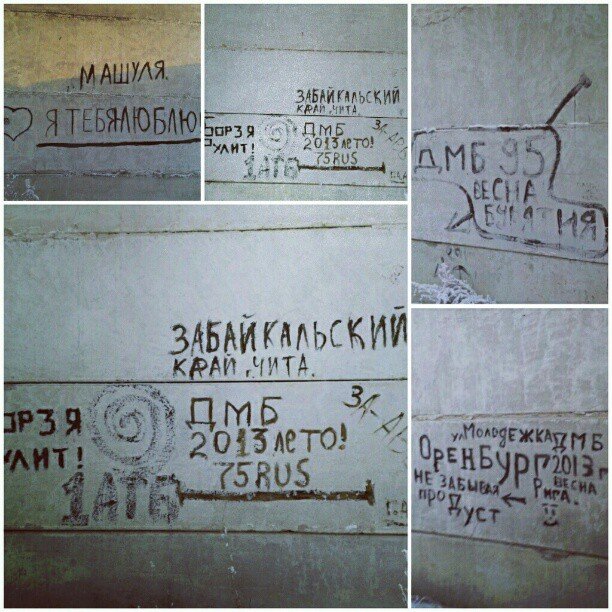 МАШУЛЯ
Я ТЕБЯ ЛЮБЛЮ
ЗАБАЙКАЛЬСКИЙ
КРАЙ, ЧИТА.
ОРЗЯ
УЛИТ!
1АТБ
ДМБ
2013 ЛЕТО!
75RUS
ДМБ 95
ВЕСНА
ЗАБАЙКАЛЬСКИЙ
КРАЙ, ЧИТА.
ОРЗЯ
УЛИТ!
1АТБ
ДМБ
2013 ЛЕТО!
75RUS
ул МОЛОДЕЖКА ДМБ
ОРЕНБУРГ 2013 г
НЕ ЗАБЫВАЯ ← РИГА. ВЕСНА
ПРО ДУСТ